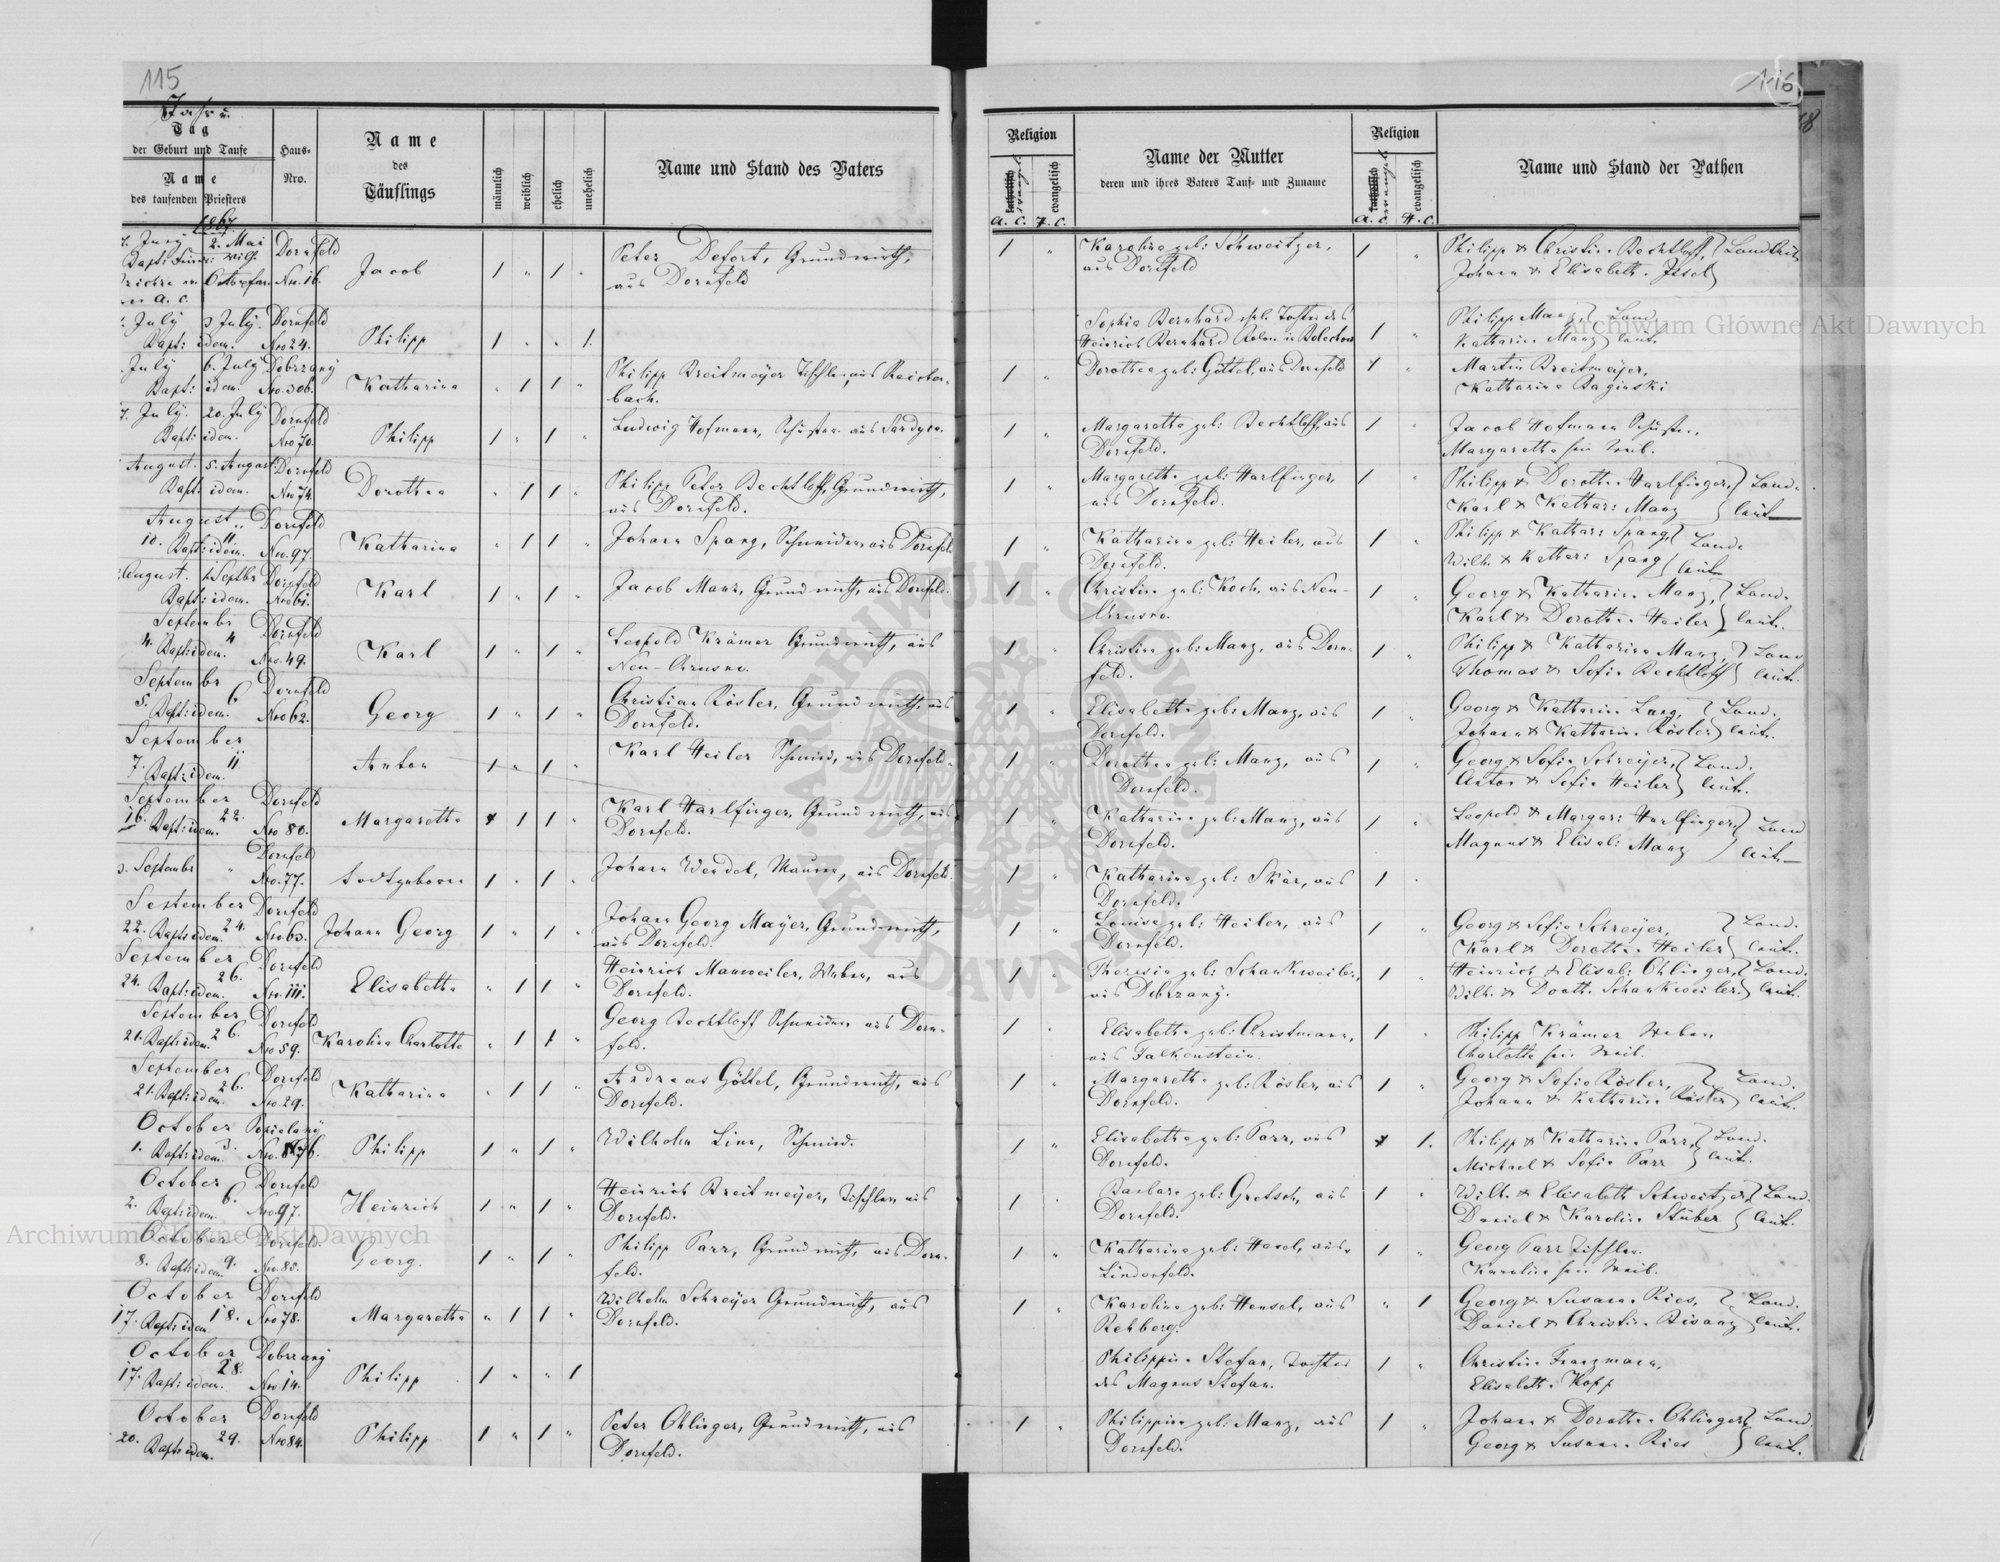 115
116
Tag
der Geburt und Taufe
Name
des taufenden Priesters
Haus-
Nro.
Name
des
Täuflings
männlich
weiblich
ehelich
unehelich
Name und Stand des Vaters
Religion
evangelisch
A. C. H. C.
Name der Mutter
deren und ihres Vaters Tauf- und Zuname
Religion
evangelisch
A. C. H. C.
Name und Stand der Pathen
2. Mai
Dornfeld
Nro. 16.
Jacob
1 " 1 "
Peter Defort, Grundwirth,
aus Dornfeld
1 "
Karolina geb: Schweitzer,
aus Dornfeld
1 "
Philipp & Christina Bechtloff,
Johann & Elisabeth
July July. Dornfeld
Bapt: idem. Nro 24.
Philipp
1 " " 1.
Sophia Bernhard Tochter des
Heinrich Bernhard
1 "
Philipp Manz, Land-
Katharina Manz leute.
July 6. July Dobrzany
Bapt: idem. Nro. 306.
Katharina
" 1 1 "
Philipp Breitmeyer Tischler, aus Reichen-
bach.
1 "
Dorothea geb: Göttel, aus Dornfeld
1 "
Martin Breitmeyer,
Katharina Baginski
July. 20. July Dornfeld
Bapt: idem. Nro 70.
Philipp
1 " 1 "
Ludwig Hofmann, Schuster aus
1 "
Margaretha geb: Bechtloff, aus
Dornfeld.
1 "
Jacob Hofmann Schuster,
Margaretha sein Weib.
August. 5. August. Dornfeld
Bapt: idem. Nro 74.
Dorothea
" 1 1 "
Philipp Peter Bechtloff, Grundwirth,
aus Dornfeld.
1 "
Margaretha geb: Harlfinger,
aus Dornfeld.
1 "
Philipp & Dorothea Harlfinger, Land-
Karl & Kathar: Manz leute
August Dornfeld
10. 11. Bapt: idem. Nro. 97.
Katharina
" 1 1 "
Johann Spang, Schneider, aus Dornfeld
1 "
Katharina geb: Heiler, aus
Dornfeld.
1 "
Philipp & Kathar: Spang, Land-
Wilh. & Kathar: Spang leute
August. Septbr Dornfeld
Bapt: idem. Nro 61.
Karl
1 " 1 "
Jacob Manz, Grundwirth, aus Dornfeld.
1 "
Christina geb: Koch, aus Neu-
Chrusno.
1 "
Georg & Katharina Manz, Land-
Karl & Dorothea Heiler leute.
September Dornfeld
4. 4 Bapt: idem. Nro. 49.
Karl
1 " 1 "
Leopold Krämer Grundwirth, aus
Neu-Chrusno.
1 "
Christina geb: Manz, aus Dorn-
feld.
1 "
Philipp & Katharina Manz, Land-
Thomas & Sofia Bechtloff leute.
September Dornfeld
5. 6 Bapt: idem. Nro 62.
Georg
1 " 1 "
Christian Rösler, Grundwirth, aus
Dornfeld.
1 "
Elisabetha geb: Manz, aus
Dornfeld.
1 "
Georg & Katharina Lang, Land-
Johann & Katharina Rösler leute.
September
7. 11 Bapt: idem.
Anton
1 " 1 "
Karl Heiler Schmied, aus Dornfeld.
1 "
Dorothea geb: Manz, aus
Dornfeld.
1 "
Georg & Sofia Schreyer, Land-
Anton & Sofia Heiler leute.
September Dornfeld
16. 22. Bapt: idem. Nro 80.
Margaretha
1 1 "
Karl Harlfinger, Grundwirth, aus
Dornfeld.
1 "
Katharina geb: Manz, aus
Dornfeld.
1 "
Leopold & Margar: Harlfinger, Land
Magnus & Elisab: Manz leute
Septembr " Dornfeld
Nro. 77.
todtgeboren
1 " 1 "
Johann Wendel, Maurer, aus Dornfeld.
1 "
Katharina geb: Skär, aus
Dornfeld.
1 "
September Dornfeld
22. 24. Bapt: idem. Nro. 63.
Johann Georg
1 " 1 "
Johann Georg Mayer, Grundwirth,
aus Dornfeld.
1 "
Louisa geb: Heiler, aus
Dornfeld.
1 "
Georg & Sofia Schreyer, Land-
Karl & Dorothea Heiler leute.
September Dornfeld
24. 26. Bapt: idem. Nro. 111.
Elisabetha
" 1 1 "
Heinrich Manweiler, Weber, aus
Dornfeld.
1 "
Theresia geb: Schankweiler,
aus Dobrzany.
1 "
Heinrich & Elisab: Ohlinger, Land-
Wilh. & Doroth. Schankweiler leute.
September Dornfeld
21. 26. Bapt: idem. Nro 59.
Karolina Charlotte
" 1 1 "
Georg Bechtloff Schneider aus Dorn-
feld.
1 "
Elisabetha geb: Christmann,
aus Falkenstein.
1 "
Philipp Krämer Weber
Charlotte sein Weib.
September Dornfeld
21. 26. Bapt: idem. Nro. 29.
Katharina
" 1 1 "
Andreas Göttel, Grundwirth, aus
Dornfeld.
1 "
Margaretha geb: Rösler, aus
Dornfeld.
1 "
Georg & Sofia Rösler, Land-
Johann & Katharina Rösler leute.
October
1. 3. Bapt: idem.
Philipp
1 " 1 "
Wilhelm Linn, Schmied.
1 "
Elisabetha geb: Parr, aus
Dornfeld.
1.
Philipp & Katharina Parr, Land-
Michael & Sofia Parr leute.
October Dornfeld
2. 6. Bapt: idem. Nro. 97.
Heinrich
1 " 1 "
Heinrich Breitmeyer, Tischler, aus
Dornfeld.
1 "
Barbara geb: Gretsch, aus
Dornfeld.
1 "
Wilh. & Elisabeth Schweitzer, Land-
Daniel & Karolina Stüber leute.
October Dornfeld.
8. 9. Bapt: idem.
Georg.
1 " 1 "
Philipp Parr, Grundwirth, aus Dorn-
feld.
1 "
Katharina geb: Hexel, aus
Lindenfeld.
1 "
Georg Parr Tischler.
Karolina sein Weib.
October Dornfeld
17. 18. Bapt: idem Nro 78.
Margaretha
" 1 1 "
Wilhelm Schreyer Grundwirth, aus
Dornfeld.
1 "
Karolina geb: Hensel, aus
Rehberg.
" 1
Georg & Susanna Ries, Land-
Daniel & Christina Bisanz leute.
October Dobrzany
17. 28. Bapt: idem. Nro 14.
Philipp
1 " " 1
Philippina Stefan, Tochter
des Magnus Stefan.
1 "
Christina Franzmann,
Elisabetha Kopp
October Dornfeld
20. 29. Bapt: idem. Nro 84.
Philipp
1 " 1 "
Peter Ohlinger, Grundwirth, aus
Dornfeld.
1 "
Philippina geb: Manz, aus
Dornfeld.
1 "
Johann & Dorothea Ohlinger Land
Georg & Susanna Ries leute.
Archiwum Główne Akt Dawnych
Archiwum Główne Akt Dawnych
ARCHIWUM GŁÓWNE AKT DAWNYCH